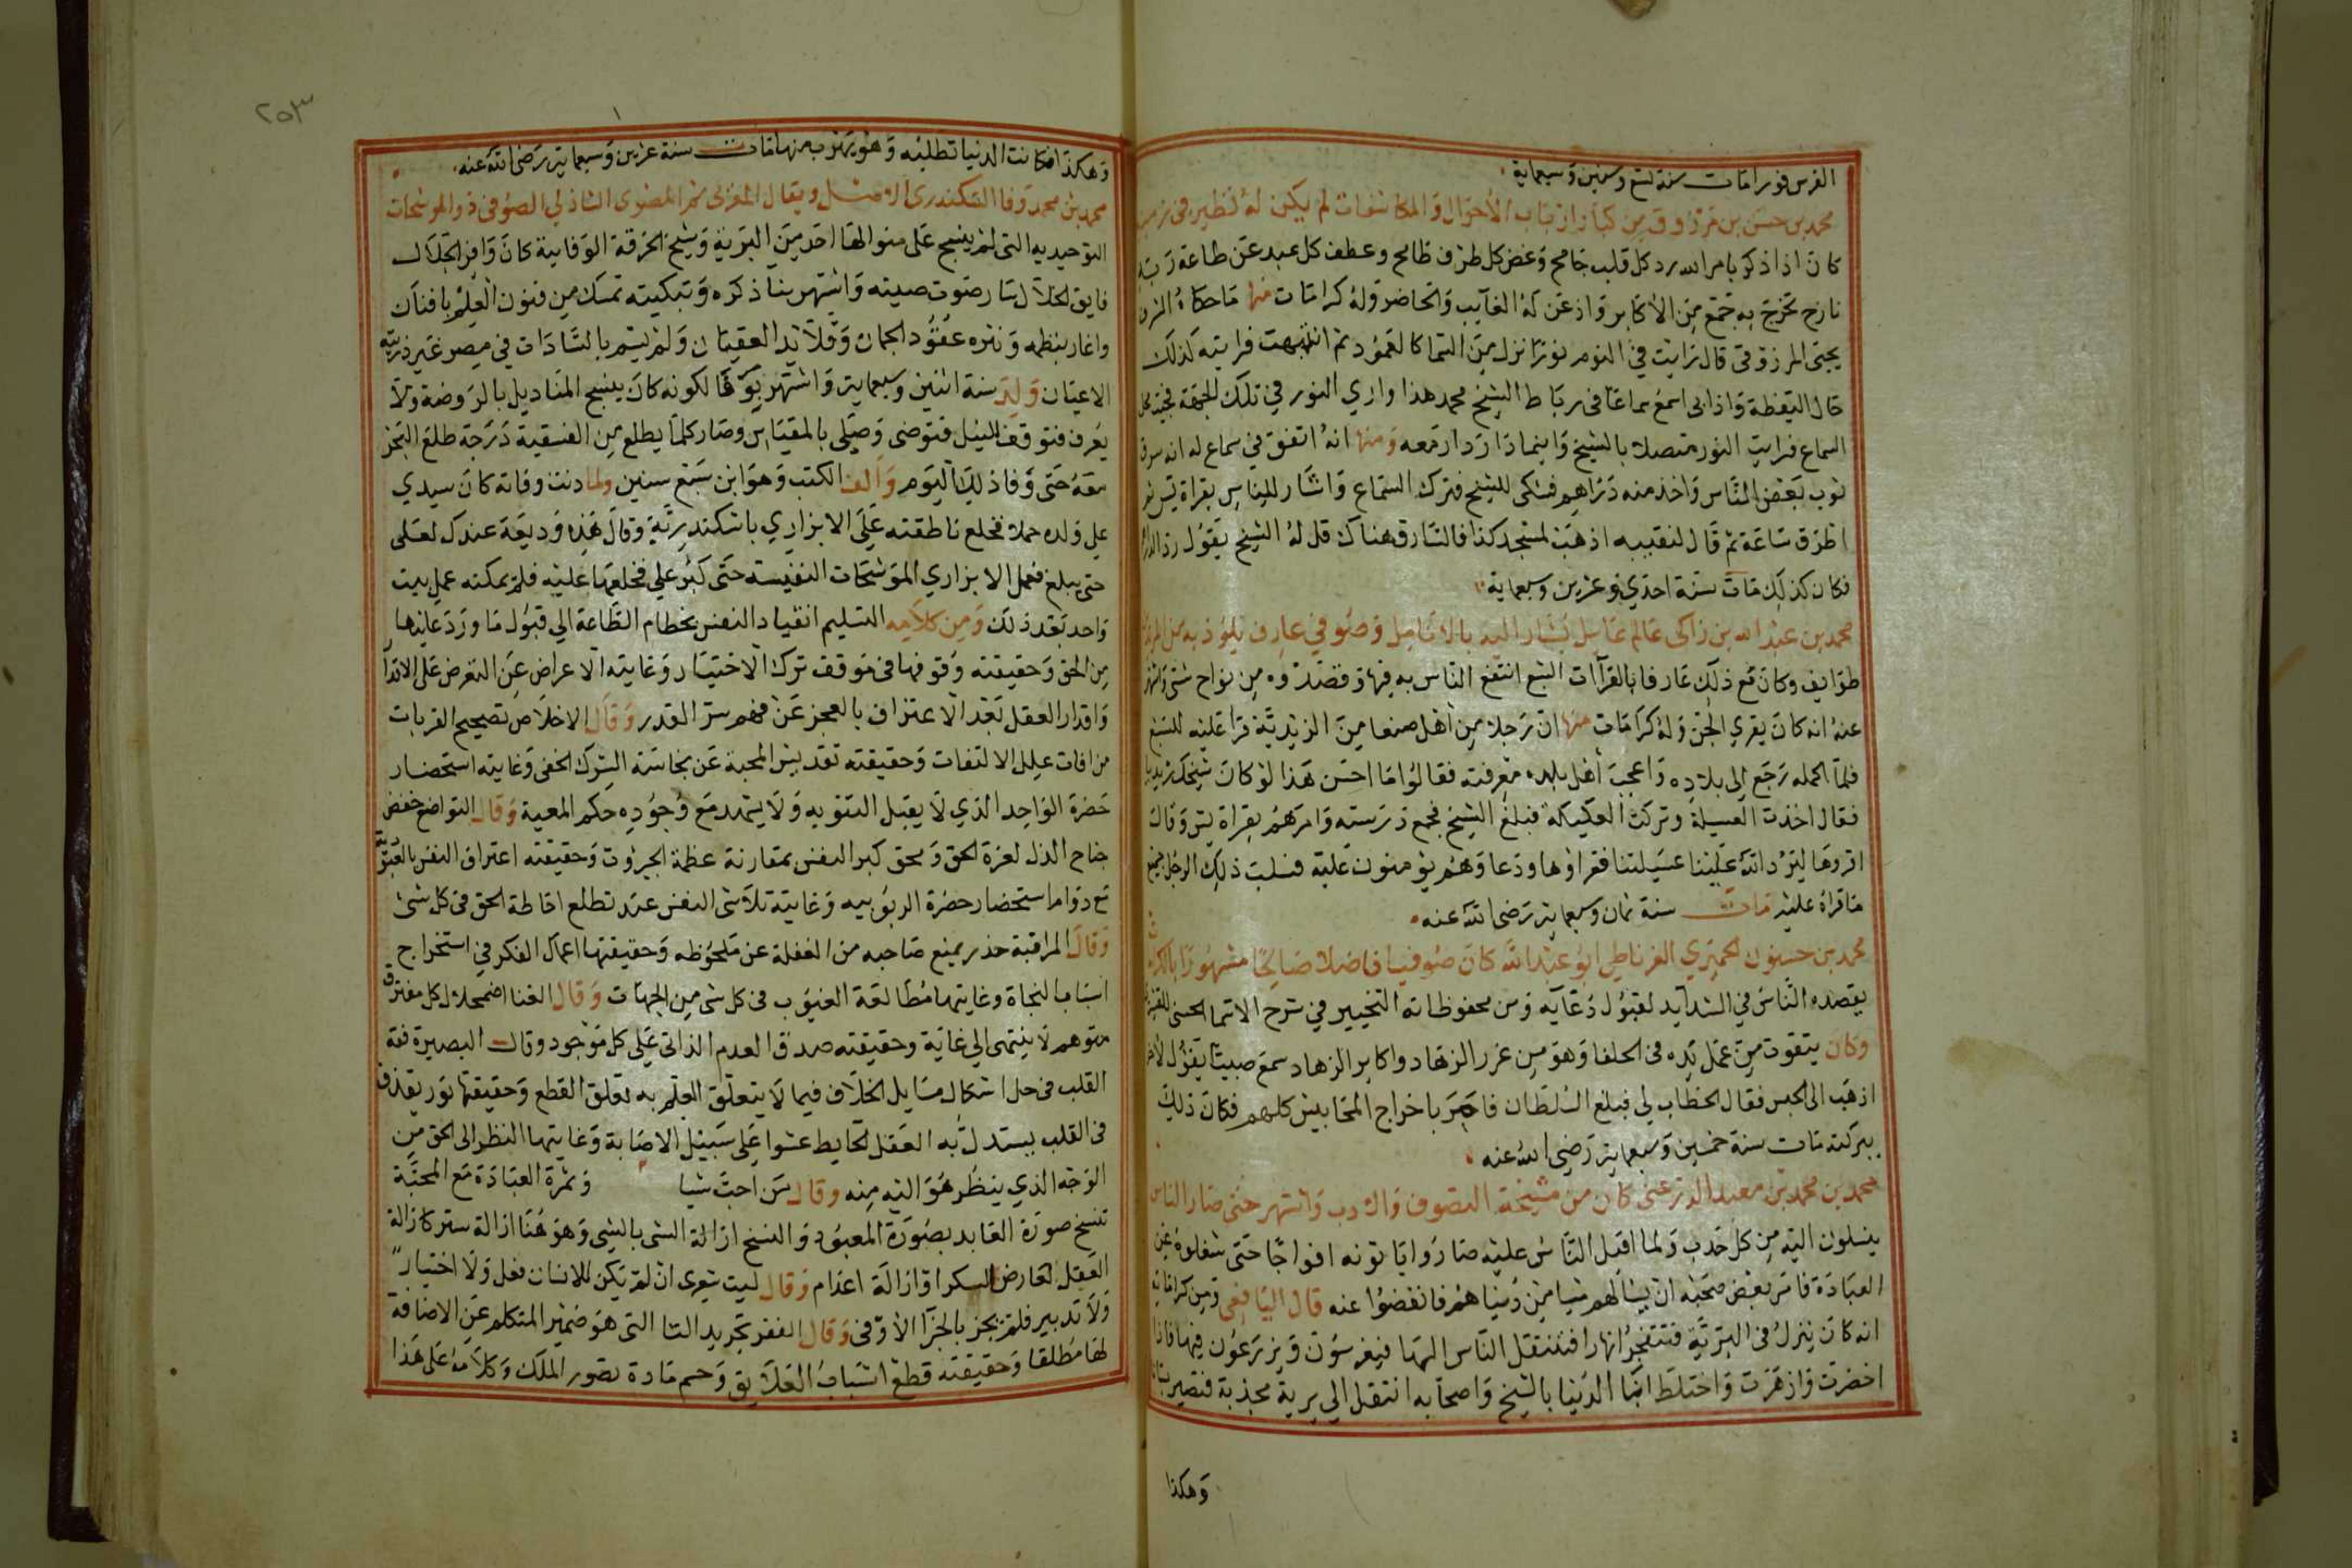 الفرس فورا مات سنة تسع وستين وسبعماية
محمد بن حسن بن مرزوق من كبار ارباب الأحوال والمكاشفات لم يكن له نظير في زمن
كان اذا ذكر بامر الله رد كل قلب جامح وغض كل طرف طامح وعطف كل عبد عن طاعة ربه
نازح تخرج به جمع من الاكابر واذعن له الغايب والحاضر وله كرامات منها ما حكاه
يحيى المرزوقى قال رايت في النوم نورا نزل من السما كالعمود ثم انتبهت فرايته كذلك
حال اليقظة واذا بى اسمع سماعا فى رباط الشيخ محمد هذا واري النور في تلك الجهة
السماع فرايت النور متصلا بالشيخ واينما دار دار معه ومنها انه اتفق في سماع له انه سرق
ثوب بعض الناس واخذ منه دراهم فشكى للشيخ فترك السماع واشار للناس بقراة يس ثم
اطرق ساعة ثم قال لنقيبه اذهب لمسجد كذا فالسارق هناك قل له الشيخ يقول رد
فكان كذلك مات سنة احدي وعشرين وسبعماية
محمد بن عبد الله بن زاكى عالم عامل يشار اليه بالانامل وصوفي عارف يلوذ به
طوايف وكان مع ذلك عارفا بالقراآت السبع انتفع الناس به فيها وقصدوه من نواح شتى
عنه انه كان يقري الجن وله كرامات منها ان رجلا من أهل صنعا من الزيدية قرا عليه للسبع
فلما اكمله رجع الى بلاده واعجب أهل بلده معرفته فقالوا ما احسن هذا لو كان شيخك زيديا
فقال اخذت العسيلة وتركت العكيكة فبلغ الشيخ فجمع درسته وامرهم بقراة يس وقال
اقروها ليرد الله علينا عسيلتنا فقراوها ودعا وهم يومنون عليه فسلب ذلك الرجل جميع
ما قراه عليه مات سنة ثمان وسبعماية رضى الله عنه
محمد بن حسنون الحميري الغرناطي ابو عبد الله كان صوفيا فاضلا صالحا مشهورا
يقصده الناس في الشدايد لقبول دعايه ومن محفوظاته التخيير في شرح الاسما الحسنى
وكان يتقوت من عمل يده فى الحلفا وهو من غرر الزهاد واكابر الزهاد سمع صبيا يقول
اذهب الى الحبس فقال الخطاب لي فبلغ السلطان فامر باخراج المحابيس كلهم فكان ذلك
ببركته مات سنة خمسين وسبعماية رضي الله عنه
محمد بن محمد بن معبد الدزعنى كان من مشيخة التصوف والادب واشتهر حتى صار الناس
ينسلون اليه من كل حدب ولما اقبل الناس عليه صاروا ياتونه افواجا حتى شغلوه عن
العبادة فامر بعض صحبه ان يسالهم شيا من دنياهم فانفضوا عنه قال اليافعى ومن كراماته
انه كان ينزل فى البرية فتتفجر انهارا فتنتقل الناس اليها فيغرسون ويزرعون فيها فاذا
اخضرت وازهرت واختلط ابنا الدنيا بالشيخ واصحابه انتقل الي برية مجدبة فتصير
وهكذا
٢٥٣
وهكذا فكانت الدنيا تطلبه وهو يهرب منها مات سنة عشرين وسبعماية رضى الله عنه
محمد بن محمد وفا السكندرى الاصل ويقال المغربى ثم المصرى الشاذلي الصوفى ذو الموشحات
التوحيديه التى لم ينسج على منوالها احد من البرية وشيخ الخرقة الوفاية كان وافر الجلال
فايق الخلال سار صوت صيته واشتهر بنا ذكره وتبكيته تمسك من فنون العلم بافنان
واغار بنظمه ونثره عقود الجمان وقلايد العقيان ولم يتسم بالسادات في مصر غير ذريته
الاعيان ولد سنة اثنين وسبعماية واشتهر بوفا لكونه كان ينسج المناديل بالروضة ولا
يعرف فتوقف النيل فتوضى وصلى بالمقياس وصار كلما يطلع من الفسقية درجة طلع البحر
معه حتى وفا ذلك اليوم وألف الكتب وهو ابن سبع سنين ولما دنت وفاته كان سيدي
علي ولده حملا فخلع ناطقته على الابزاري باسكندرية وقال هذه وديعة عندك لعلى
حتى يبلغ فعمل الابزاري الموشحات النفيسة حتى كبر علي فخلعها عليه فلم يمكنه عمل بيت
واحد بعد ذلك ومن كلامه التسليم انقياد النفس بخطام الطاعة الي قبول ما ورد عليها
من الحق وحقيقته وقوفها فى موقف ترك الاختيار وغايته الاعراض عن التعرض على الاقدار
واقدار العقل بعد الاعتراف بالعجز عن فهم سر القدر وقال الاخلاص تصحيح القربات
من افات علل الالتفات وحقيقته تقديس المحبة عن نجاسة الشرك الخفى وغايته استحضار
حضرة الواحد الذي لا يقبل التنويه ولا يشهد مع وجوده حكم المعية وقال التواضع خفض
جناح الذل لعزة الحق ومحق كبر النفس بمقارنة عظمة الجبروت وحقيقته اعتراف النفس بالعبودية
مع دوام استحضار حضرة الربوبيه وغايته تلاشى النفس عند تطلع احاطة الحق فى كل شئ
وقال المراقبة حذر يمنع صاحبه من الغفلة عن ملحوظه وحقيقتها اعمال الفكر في استخراج
اسباب النجاة وغايتها مطالعة الغيوب فى كل شى من الجهات وقال الفنا اضمحلال كل مفترق
متوهم لا ينتهى الي غاية وحقيقته صدق العدم الذاتى على كل موجود وقال البصيرة فقه
القلب فى حل اشكال مسايل الخلاف فيما لا يتعلق العلم به تعلق القطع وحقيقتها نور يقذف
فى القلب يستدل به العقل لخابط عشوا على سبيل الاصابة وغايتها النظر الى الحق من
الوجه الذي ينظر هو اليه منه وقال من احب شيا وثمرة العبادة مع المحبة
تنسخ صورة العابد بصورة المعبود والنسخ ازالة الشى بالشى وهو هنا ازالة ستر كازالة
العقل لعارض السكر او ازالة اعدام وقال ليت شعرى ان لم يكن للانسان فعل ولا اختيار
ولا تدبير فلم يجز بالجزا الاوفى وقال الفقر تجريد التا التى هو ضمير المتكلم عن الاضافة
لها مطلقا وحقيقته قطع اسباب العلايق وحسم مادة تصور الملك وكلامه على هذا